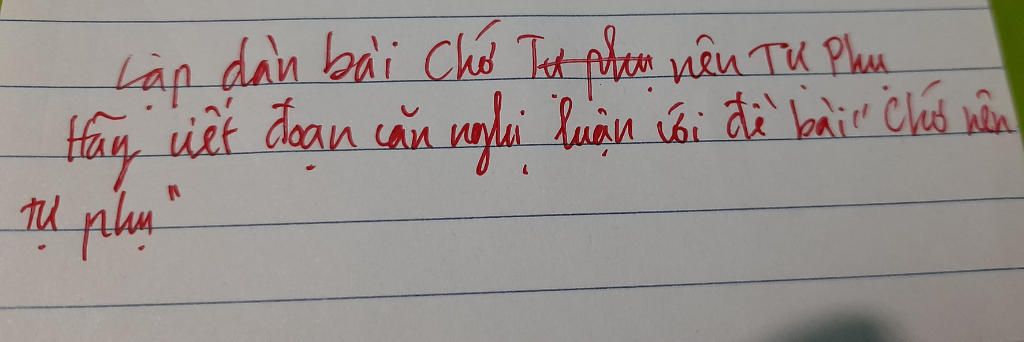 Lập dàn bài Chớ Tự phụ nên Tự Phụ
Hãy viết đoạn văn nghị luận với đề bài "Chớ nên
tự phụ"